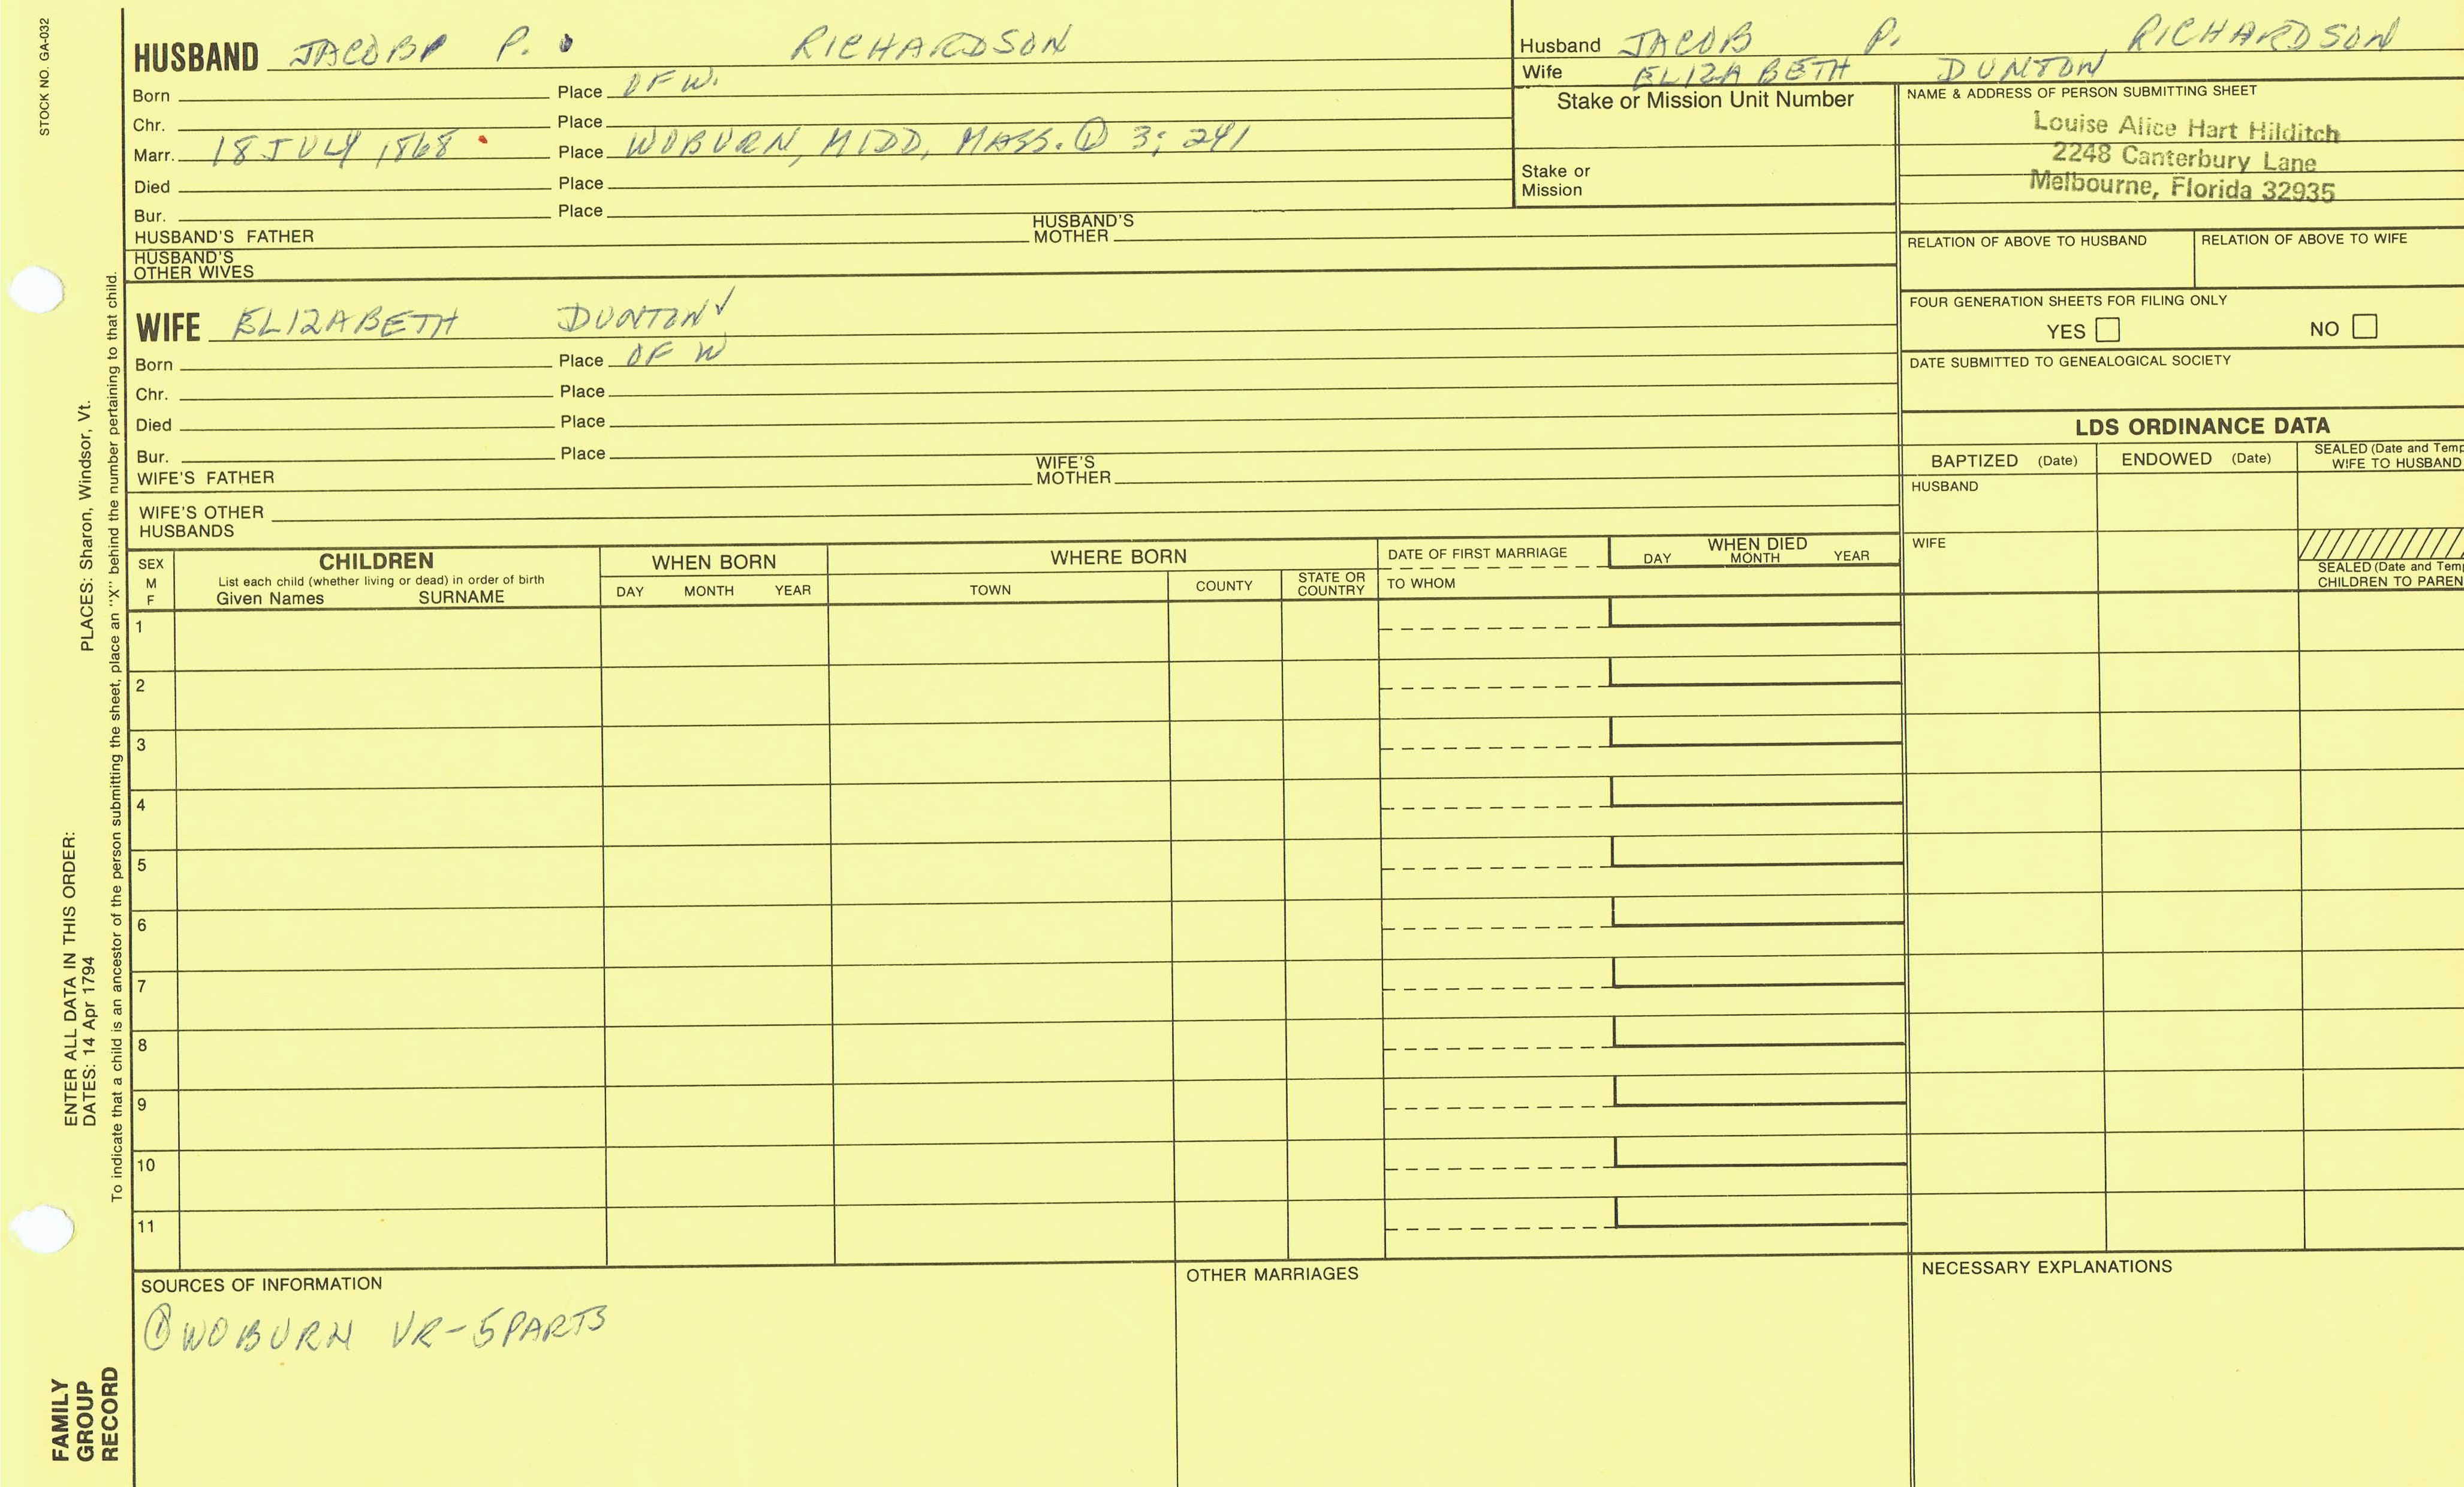 STOCK NO. GA-032
HUSBAND JACOB P. RICHARDSON
Born Place OF W.
Chr. Place
Marr. 18 JULY 1868 Place WOBURN, MIDD, MASS. ① 3; 241
Died Place
Bur. Place
HUSBAND'S FATHER HUSBAND'S MOTHER
HUSBAND'S OTHER WIVES
WIFE ELIZABETH DUNTON ✓
Born Place OF W
Chr. Place
Died Place
Bur. Place
WIFE'S FATHER WIFE'S MOTHER
WIFE'S OTHER HUSBANDS
Husband JACOB P. RICHARDSON
Wife ELIZABETH DUNTON
Stake or Mission Unit Number
Stake or
Mission
NAME & ADDRESS OF PERSON SUBMITTING SHEET
Louise Alice Hart Hilditch
2248 Canterbury Lane
Melbourne, Florida 32935
RELATION OF ABOVE TO HUSBAND RELATION OF ABOVE TO WIFE
FOUR GENERATION SHEETS FOR FILING ONLY
YES NO
DATE SUBMITTED TO GENEALOGICAL SOCIETY
LDS ORDINANCE DATA
BAPTIZED (Date) ENDOWED (Date) SEALED (Date and Temp
WIFE TO HUSBAND
HUSBAND
WIFE
SEALED (Date and Tem
CHILDREN TO PAREN
SEX
M
F
CHILDREN
List each child (whether living or dead) in order of birth
Given Names SURNAME
WHEN BORN
DAY MONTH YEAR
WHERE BORN
TOWN COUNTY STATE OR COUNTRY
DATE OF FIRST MARRIAGE
TO WHOM
WHEN DIED
DAY MONTH YEAR
1
2
3
4
5
6
7
8
9
10
11
SOURCES OF INFORMATION
① WOBURN VR-5PARTS
OTHER MARRIAGES
NECESSARY EXPLANATIONS
ENTER ALL DATA IN THIS ORDER:
DATES: 14 Apr 1794 PLACES: Sharon, Windsor, Vt.
To indicate that a child is an ancestor of the person submitting the sheet, place an "X" behind the number pertaining to that child.
FAMILY
GROUP
RECORD